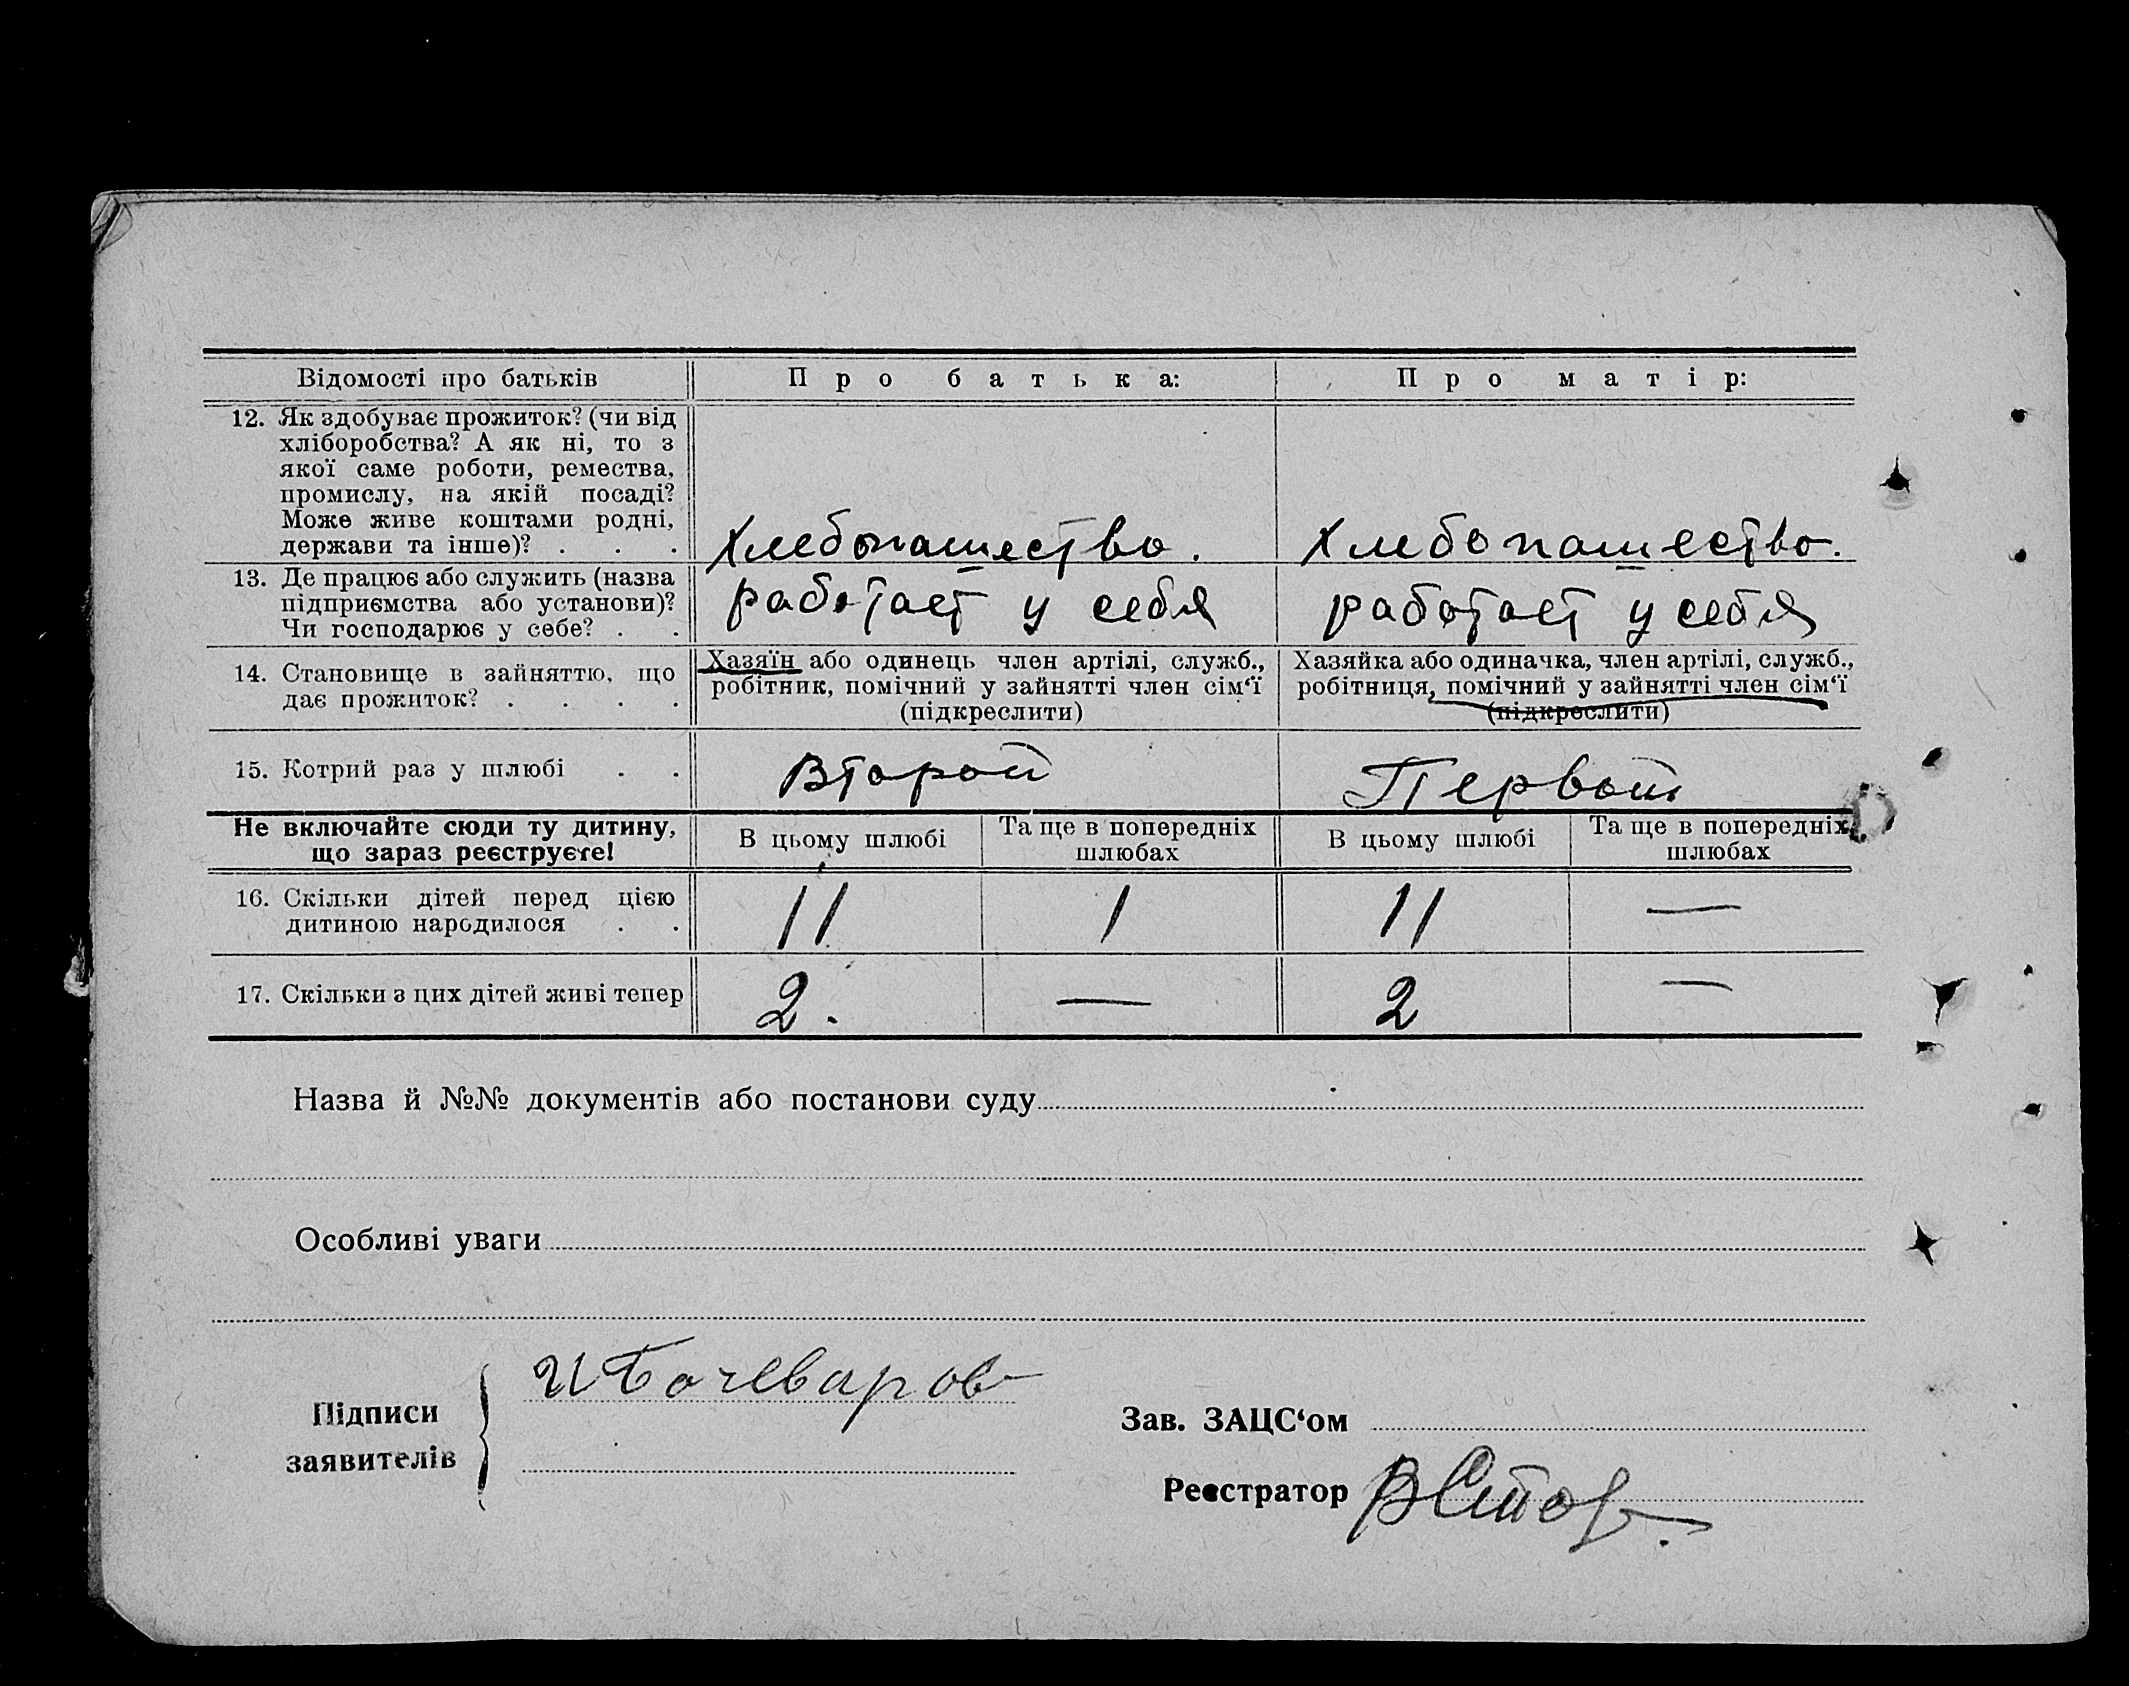 Відомості про батьків
Про батька:
Про матір:
12. Як здобуває прожиток? (чи від
хліборобства? А як ні, то з
якої саме роботи, ремества,
промислу, на якій посаді?
Може живе коштами родні,
держави та інше)? . . .
Хлебопашество.
Хлебопашество.
13. Де працює або служить (назва
підприємства або установи)?
Чи господарює у себе? . .
работает у себя
работает у себя
14. Становище в зайняттю, що
дає прожиток? . . . .
Хазяїн або одинець член артілі, служб.,
робітник, помічний у зайнятті член сім‘ї
(підкреслити)
Хазяйка або одиначка, член артілі, служб.,
робітниця, помічний у зайнятті член сім‘ї
(підкреслити)
15. Котрий раз у шлюбі . .
Второй
Первый
Не включайте сюди ту дитину,
що зараз реєструєте!
В цьому шлюбі
Та ще в попередніх
шлюбах
В цьому шлюбі
Та ще в попередніх
шлюбах
16. Скільки дітей перед цією
дитиною народилося . .
11
1
11
—
17. Скільки з цих дітей живі тепер
2.
—
2
—
Назва й №№ документів або постанови суду
Особливі уваги
Підписи
заявителів
И Бочеваров
Зав. ЗАЦС‘ом
Реєстратор